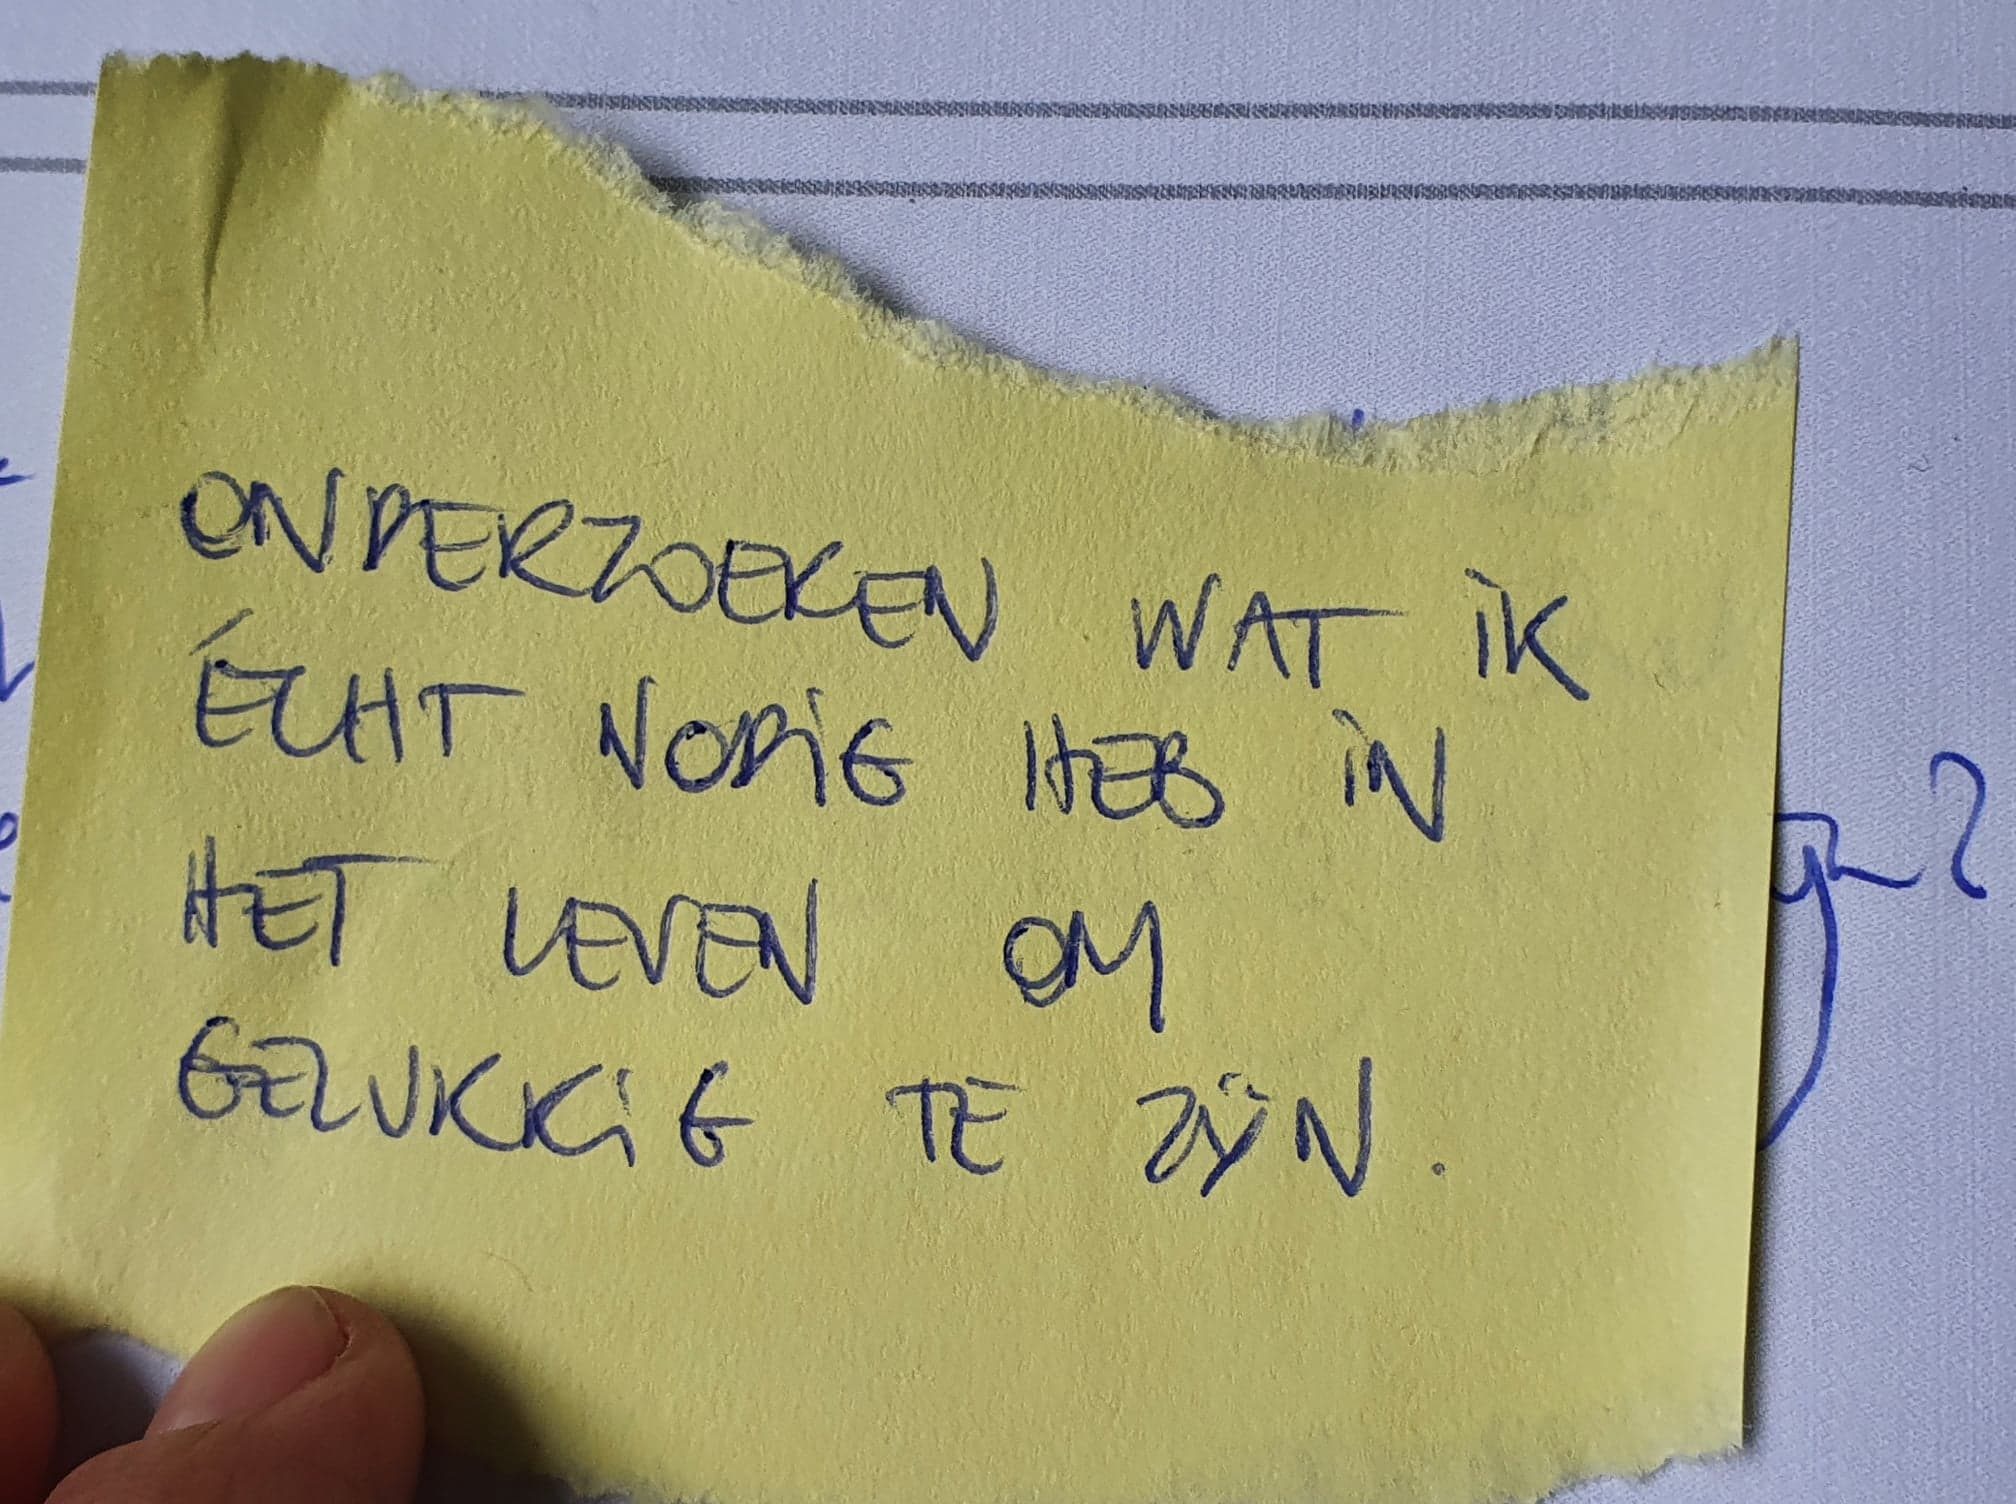 ONDERZOEKEN WAT IK
ÉCHT NODIG HEB IN
HET LEVEN OM
GELUKKIG TE ZIJN.